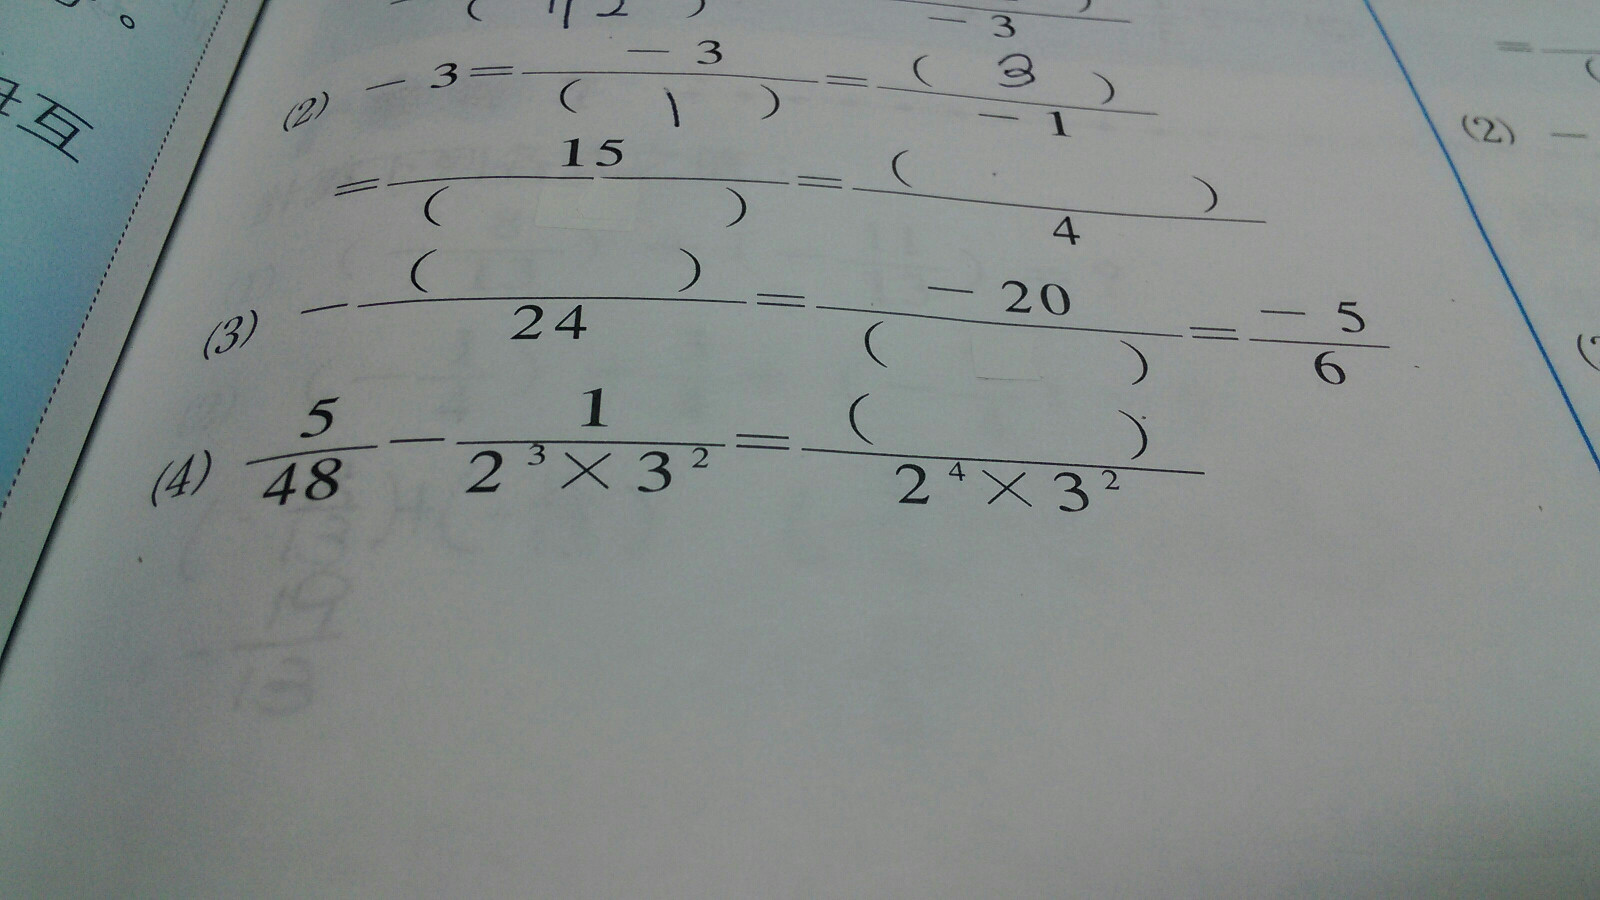 互
- 3
(2) - 3 = - 3 / ( 1 ) = ( 3 ) / - 1
= 15 / ( ) = ( ) / 4
(3) - ( ) / 24 = - 20 / ( ) = - 5 / 6
(4) 5 / 48 - 1 / 2³ × 3² = ( ) / 2⁴ × 3²
(2) -